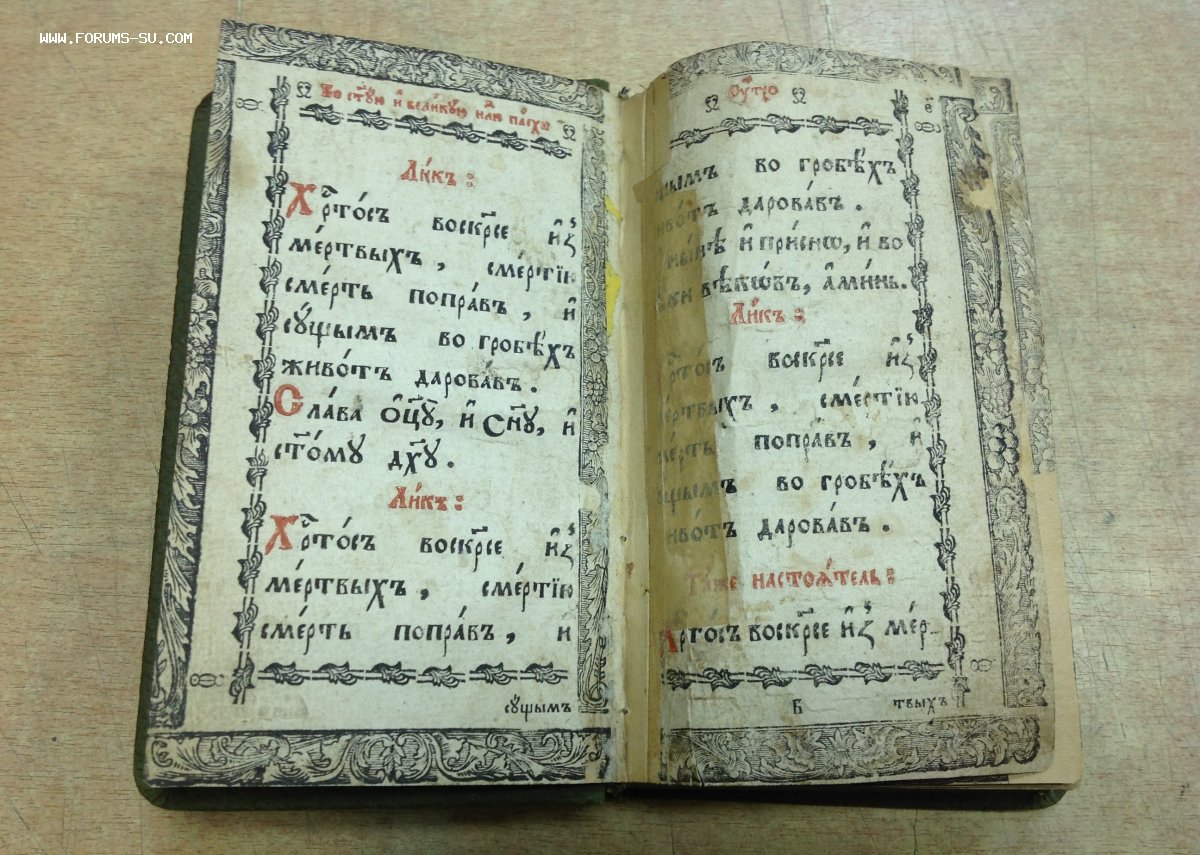 WWW.FORUMS-SU.COM
Во ст҃ꙋю и҆ вели́кꙋю нл҃ю па́схи
Ли́къ :
Хрⷭ҇то́съ воскр҃се и҆з̾
ме́ртвыхъ , сме́ртїю
сме́рть попра́въ , и҆
сꙋ́щымъ во гробѣ́хъ
живо́тъ дарова́въ .
Сла́ва Ѻ҆ц҃ꙋ̀, и҆ Сн҃ꙋ, и҆
ст҃о́мꙋ дх҃ꙋ .
Ли́къ :
Хрⷭ҇то́съ воскр҃се и҆з̾
ме́ртвыхъ , сме́ртїю
сме́рть попра́въ , и
сꙋ́щымъ
Оу҆́тро
є҃
щымъ во гробѣ́хъ
иво́тъ дарова́въ .
ны́нѣ и҆ при́снѡ, и҆ во
вѣкѡ́въ, а҆ми́нь.
Ли́къ :
рⷭ҇то́съ воскр҃се и҆з̾
ертвыхъ , сме́ртїю
ме́рть попра́въ , и҆
щымъ во гробѣ́хъ
иво́тъ дарова́въ .
Та́же настоѧ́тель :
Хрⷭ҇то́съ воскр҃се и҆з̾ ме́р-
Б твыхъ